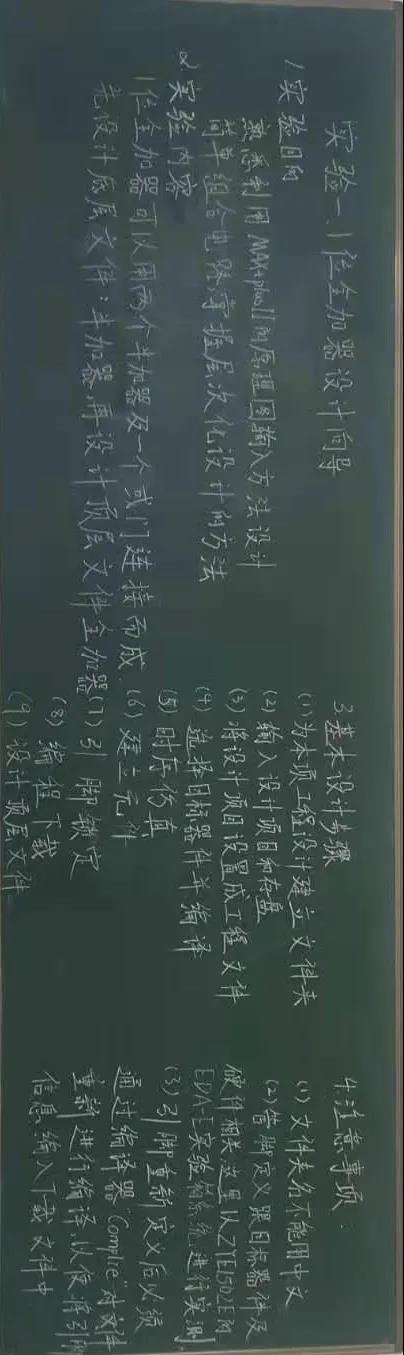 实验一、1位全加器设计向导
1.实验目的
熟悉利用MAX+plusII的原理图输入方法设计
简单组合电路掌握层次化设计的方法
2.实验内容
1位全加器可以用两个半加器及一个或门连接而成
先设计底层文件:半加器,再设计顶层文件全加器
3.基本设计步骤
(1)为本项工程设计建立文件夹
(2)输入设计项目和存盘
(3)将设计项目设置成工程文件
(4)选择目标器件并编译
(5)时序仿真
(6)建立元件
(7)引脚锁定
(8)编程下载
(9)设计顶层文件
4.注意事项
(1)文件夹名不能用中文
(2)管脚定义跟目标器件及
硬件相关 这里以 的
EDA-E实验箱系统进行实测
(3)引脚重新定义后必须
通过编译器"Complie"对文件
重新进行编译,以便将引脚
信息编入下载文件中